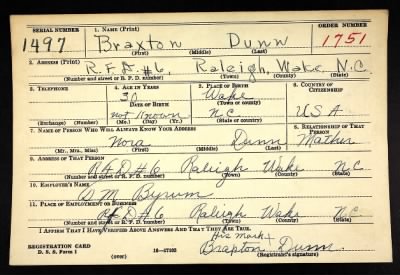 SERIAL NUMBER 1. NAME (Print) ORDER NUMBER
1497 Braxton Dunn 1751
(First) (Middle) (Last)
2. ADDRESS (Print)
R.F.D. #6, Raleigh, Wake, N.C.
(Number and street or R. F. D. number) (Town) (County) (State)
3. TELEPHONE 4. AGE IN YEARS 5. PLACE OF BIRTH 6. COUNTRY OF CITIZENSHIP
30 Wake
DATE OF BIRTH (Town or county)
not Known NC USA
(Exchange) (Number) (Mo.) (Day) (Yr.) (State or country)
7. NAME OF PERSON WHO WILL ALWAYS KNOW YOUR ADDRESS 8. RELATIONSHIP OF THAT PERSON
Nora Dunn Mother
(Mr., Mrs., Miss) (First) (Middle) (Last)
9. ADDRESS OF THAT PERSON
R F D #6 Raleigh Wake N.C.
(Number and street or R. F. D. number) (Town) (County) (State)
10. EMPLOYER'S NAME
Byrum
11. PLACE OF EMPLOYMENT OR BUSINESS
R F D #6 Raleigh Wake NC
(Number and street or R. F. D. number) (Town) (County) (State)
I AFFIRM THAT I HAVE VERIFIED ABOVE ANSWERS AND THAT THEY ARE TRUE.
His mark x
REGISTRATION CARD
D. S. S. Form 1 (over) 16—17105 Braxton Dunn
(Registrant's signature)